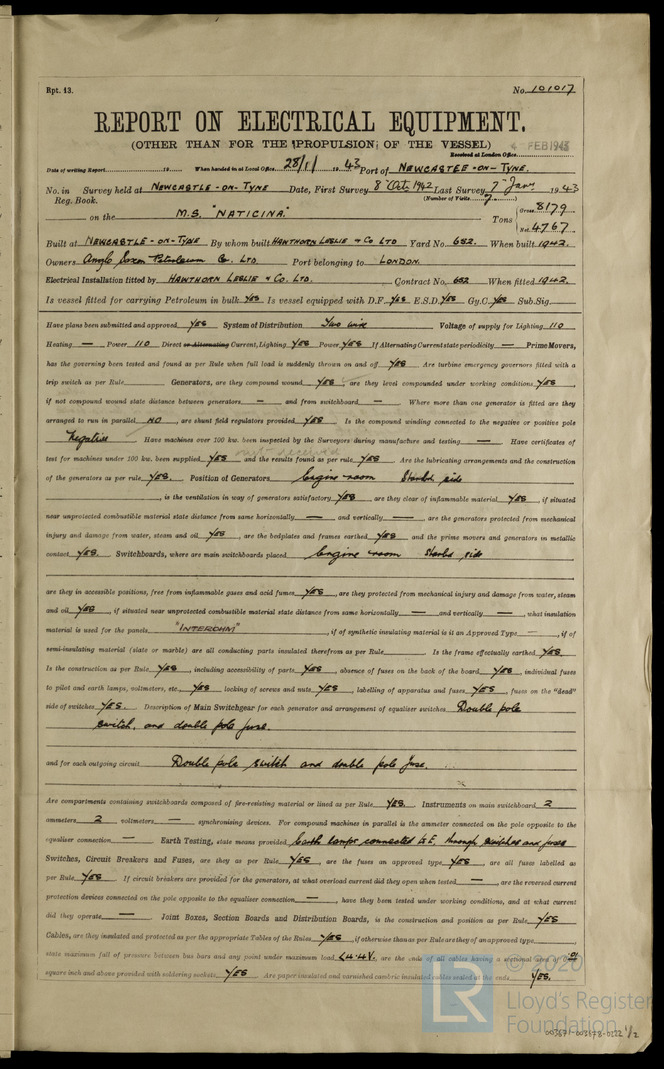 Rpt. 13.
No. 101017
REPORT ON ELECTRICAL EQUIPMENT.
(OTHER THAN FOR THE PROPULSION OF THE VESSEL)
4 FEB 1943
Received at London Office
Date of writing Report 19 When handed in at Local Office 28/1/ 1943 Port of NEWCASTLE-ON-TYNE.
No. in Survey held at NEWCASTLE-ON-TYNE Date, First Survey 8 Oct 1942 Last Survey 7 Jan 1943
Reg. Book. (Number of Visits 7)
on the M.S. "NATICINA." Tons Gross 8179
Net 4767
Built at NEWCASTLE-ON-TYNE By whom built HAWTHORN LESLIE & CO LTD Yard No. 652. When built 1942.
Owners Anglo Saxon Petroleum Co. LTD Port belonging to LONDON.
Electrical Installation fitted by HAWTHORN LESLIE & CO. LTD. Contract No. 652 When fitted 1942.
Is vessel fitted for carrying Petroleum in bulk YES Is vessel equipped with D.F. YES E.S.D. YES Gy.C. YES Sub.Sig.
Have plans been submitted and approved YES System of Distribution Two wire Voltage of supply for Lighting 110
Heating — Power 110 Direct or Alternating Current, Lighting YES Power YES If Alternating Current state periodicity — Prime Movers,
has the governing been tested and found as per Rule when full load is suddenly thrown on and off YES Are turbine emergency governors fitted with a
trip switch as per Rule Generators, are they compound wound YES are they level compounded under working conditions YES,
if not compound wound state distance between generators — and from switchboard — Where more than one generator is fitted are they
arranged to run in parallel NO, are shunt field regulators provided YES Is the compound winding connected to the negative or positive pole
Negative Have machines over 100 kw. been inspected by the Surveyors during manufacture and testing — Have certificates of
test for machines under 100 kw. been supplied YES and the results found as per rule YES Are the lubricating arrangements and the construction
of the generators as per rule YES. Position of Generators Engine room Starbd side
, is the ventilation in way of generators satisfactory YES are they clear of inflammable material YES, if situated
near unprotected combustible material state distance from same horizontally — and vertically — are the generators protected from mechanical
injury and damage from water, steam and oil YES, are the bedplates and frames earthed YES and the prime movers and generators in metallic
contact YES. Switchboards, where are main switchboards placed Engine room Starbd side
are they in accessible positions, free from inflammable gases and acid fumes YES, are they protected from mechanical injury and damage from water, steam
and oil YES, if situated near unprotected combustible material state distance from same horizontally — and vertically —, what insulation
material is used for the panels "INTEROHM", if of synthetic insulating material is it an Approved Type —, if of
semi-insulating material (slate or marble) are all conducting parts insulated therefrom as per Rule Is the frame effectually earthed YES
Is the construction as per Rule YES, including accessibility of parts YES, absence of fuses on the back of the board YES, individual fuses
to pilot and earth lamps, voltmeters, etc. YES locking of screws and nuts YES, labelling of apparatus and fuses YES, fuses on the "dead"
side of switches YES. Description of Main Switchgear for each generator and arrangement of equaliser switches Double pole
switch, and double pole fuse.
and for each outgoing circuit Double pole switch and double pole fuse.
Are compartments containing switchboards composed of fire-resisting material or lined as per Rule YES. Instruments on main switchboard 2
ammeters 2 voltmeters — synchronising devices. For compound machines in parallel is the ammeter connected on the pole opposite to the
equaliser connection — Earth Testing, state means provided Earth lamps connected to E. through switches and fuses
Switches, Circuit Breakers and Fuses, are they as per Rule YES, are the fuses an approved type YES, are all fuses labelled as
per Rule YES If circuit breakers are provided for the generators, at what overload current did they open when tested —, are the reversed current
protection devices connected on the pole opposite to the equaliser connection —, have they been tested under working conditions, and at what current
did they operate — Joint Boxes, Section Boards and Distribution Boards, is the construction and position as per Rule YES
Cables, are they insulated and protected as per the appropriate Tables of the Rules YES, if otherwise than as per Rule are they of an approved type
state maximum fall of pressure between bus bars and any point under maximum load L4.4V. are the ends of all cables having a sectional area of 0.01
square inch and above provided with soldering sockets YES Are paper insulated and varnished cambric insulated cables sealed at the ends YES.
© 2020
LR
Lloyd's Register
Foundation
003671-003678-0222 1/2